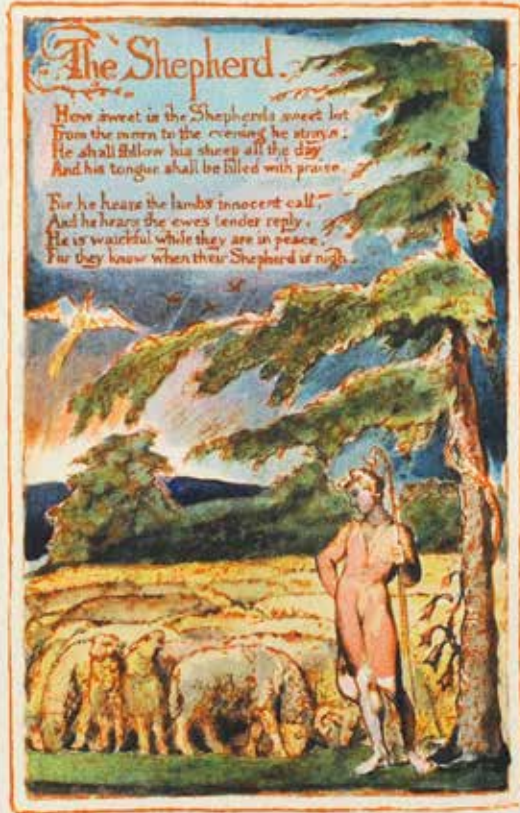 The Shepherd.
How sweet is the Shepherds sweet lot
From the morn to the evening he strays:
He shall follow his sheep all the day
And his tongue shall be filled with praise.
For he hears the lambs innocent call,
And he hears the ewes tender reply.
He is watchful while they are in peace,
For they know when their Shepherd is nigh.